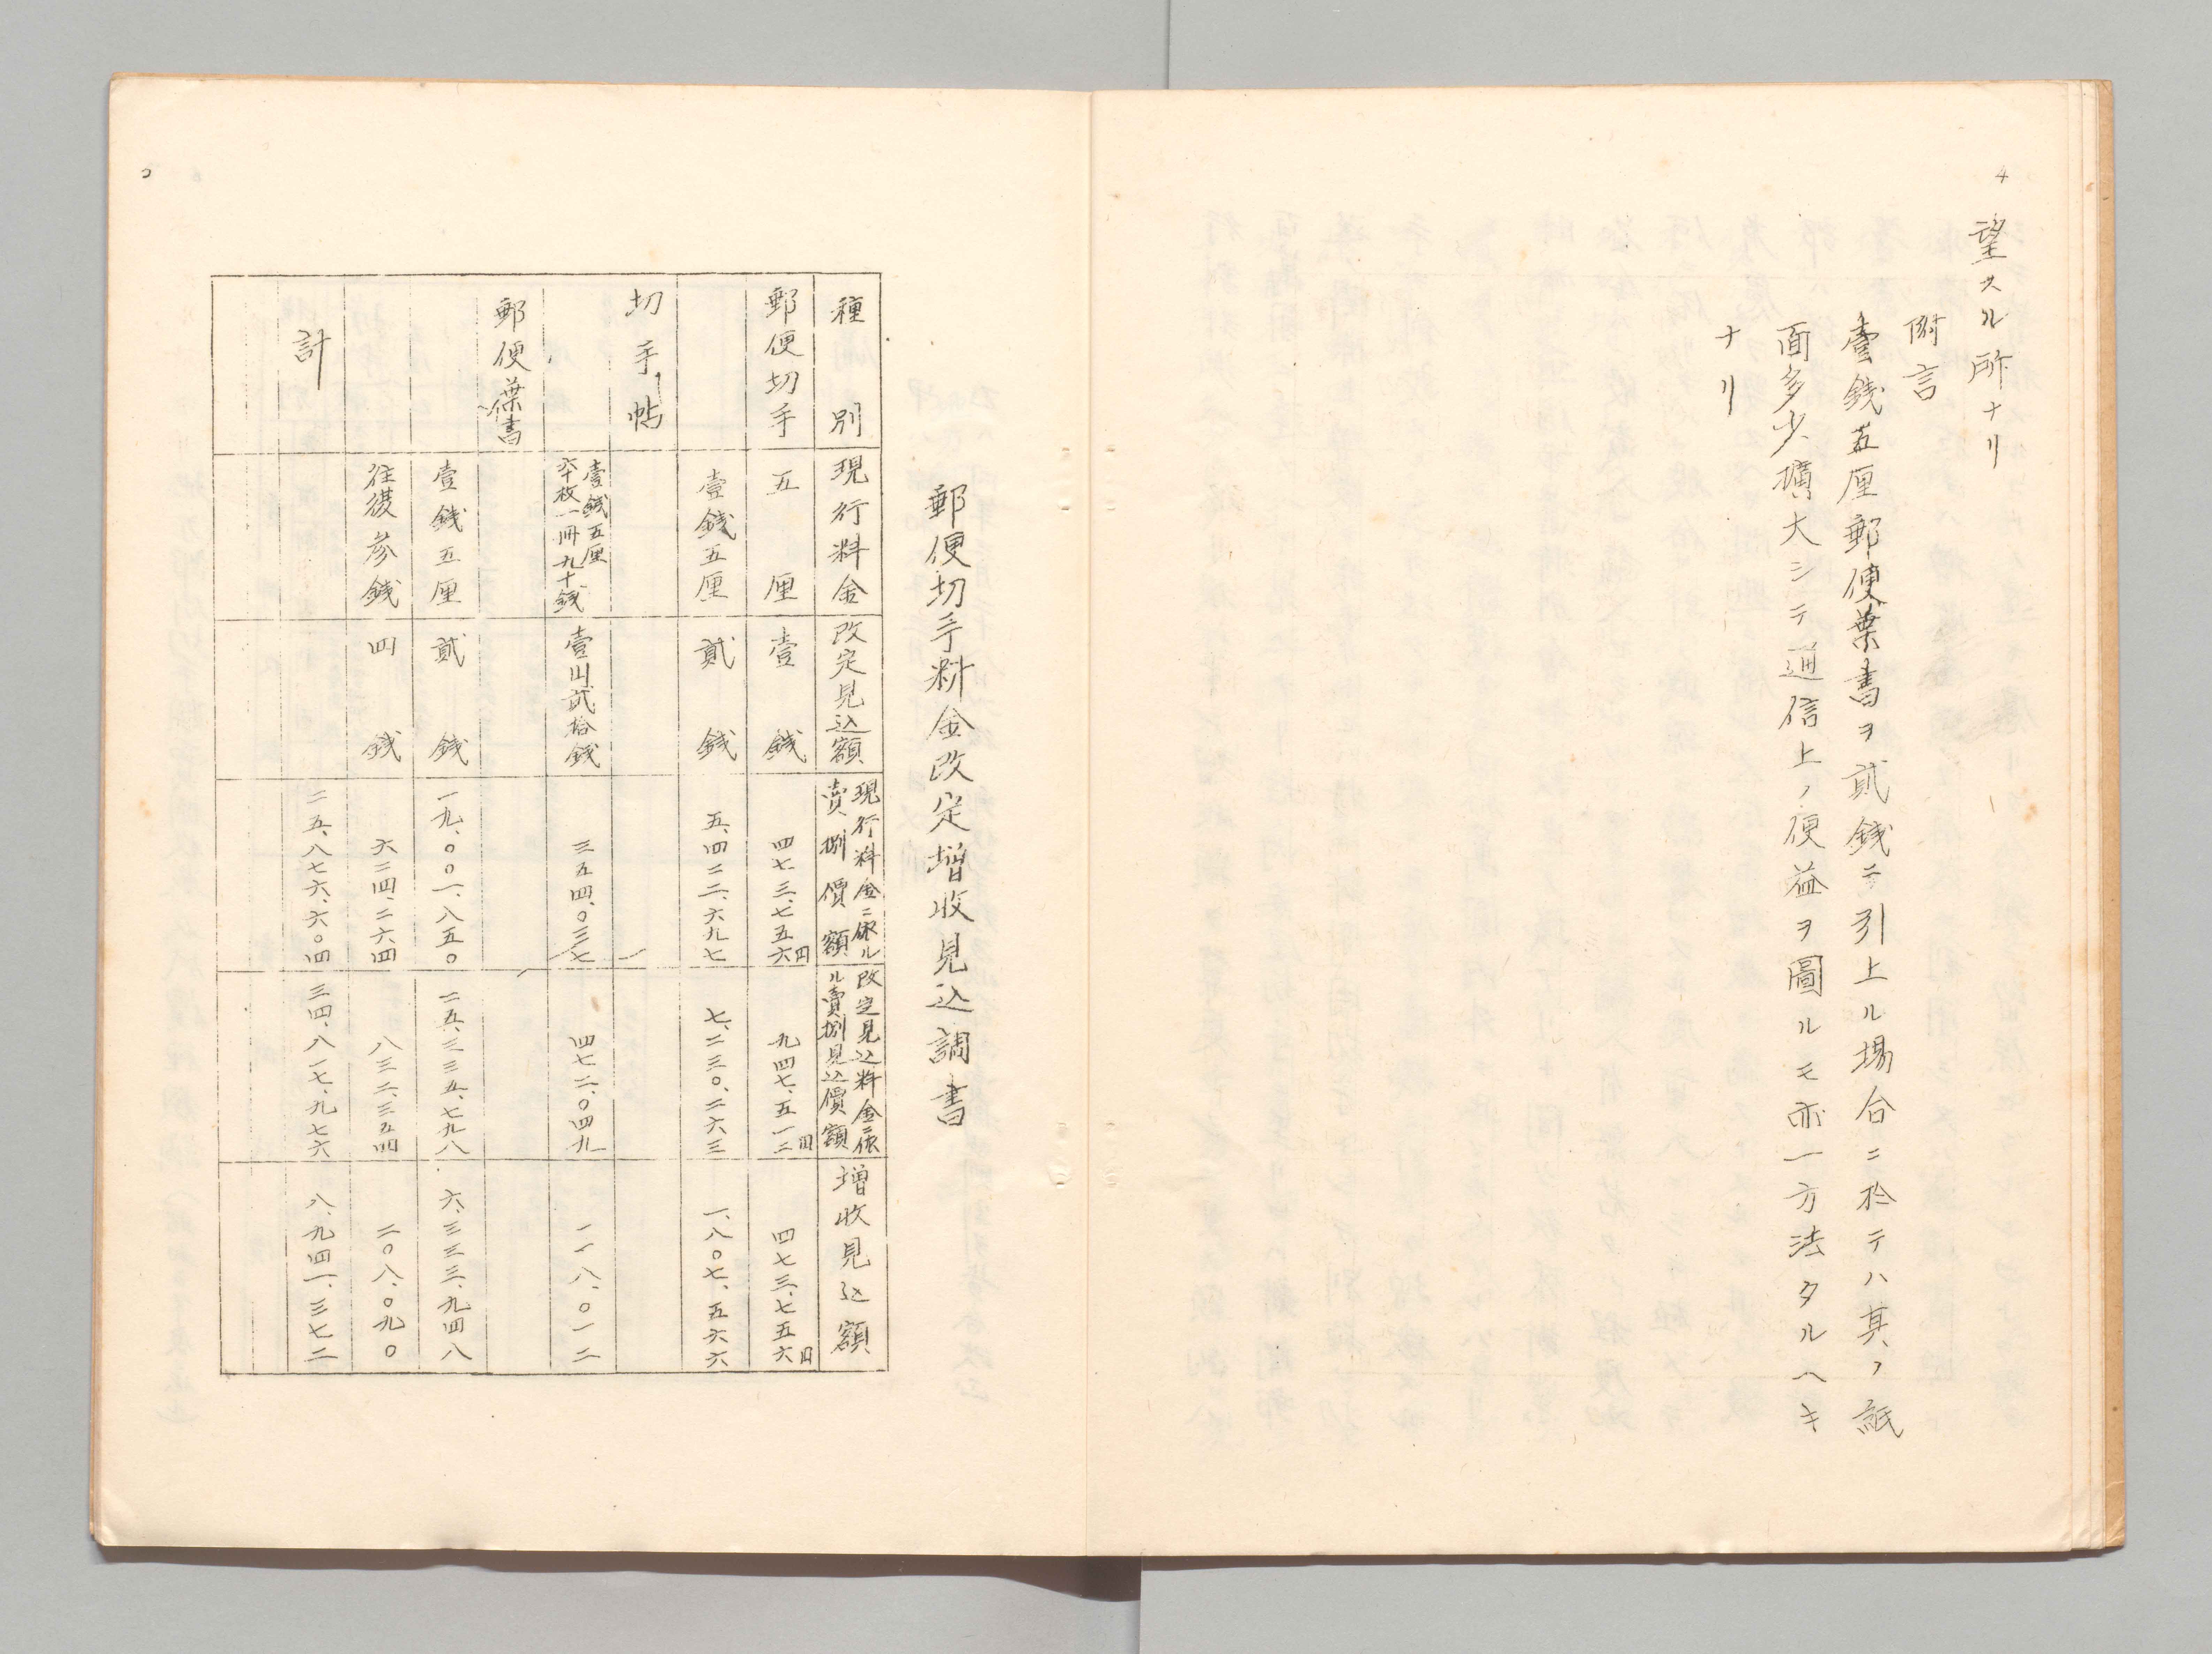 4
望スル所ナリ
附言
壹錢五厘郵便葉書ヲ貳錢ニ引上ル場合ニ於テハ其ノ紙
面多少擴大シテ通信上ノ便益ヲ圖ルモ亦一方法タルヘキ
ナリ
郵便切手料金改定增收見込調書
種別 現行料金 改定見込額 現行料金ニ依ル賣捌價額 改定見込料金ニ依ル賣捌見込價額 增收見込額
郵便切手 五厘 壹錢 四七三、七五六円 九四七、五一二円 四七三、七五六円
壹錢五厘 貳錢 五、四二二、六九七 七、二三〇、二六三 一、八〇七、五六六
切手帖
壹錢五厘六十枚一冊九十錢 壹円貳拾錢 三五四、〇三七 四七二、〇四九 一一八、〇一二
郵便葉書
壹錢五厘 貳錢 一九、〇〇一、八五〇 二五、三三五、七九八 六、三三三、九四八
往復參錢 四錢 六二四、二六四 八三二、三五四 二〇八、〇九〇
計 二五、八七六、六〇四 三四、八一七、九七六 八、九四一、三七二